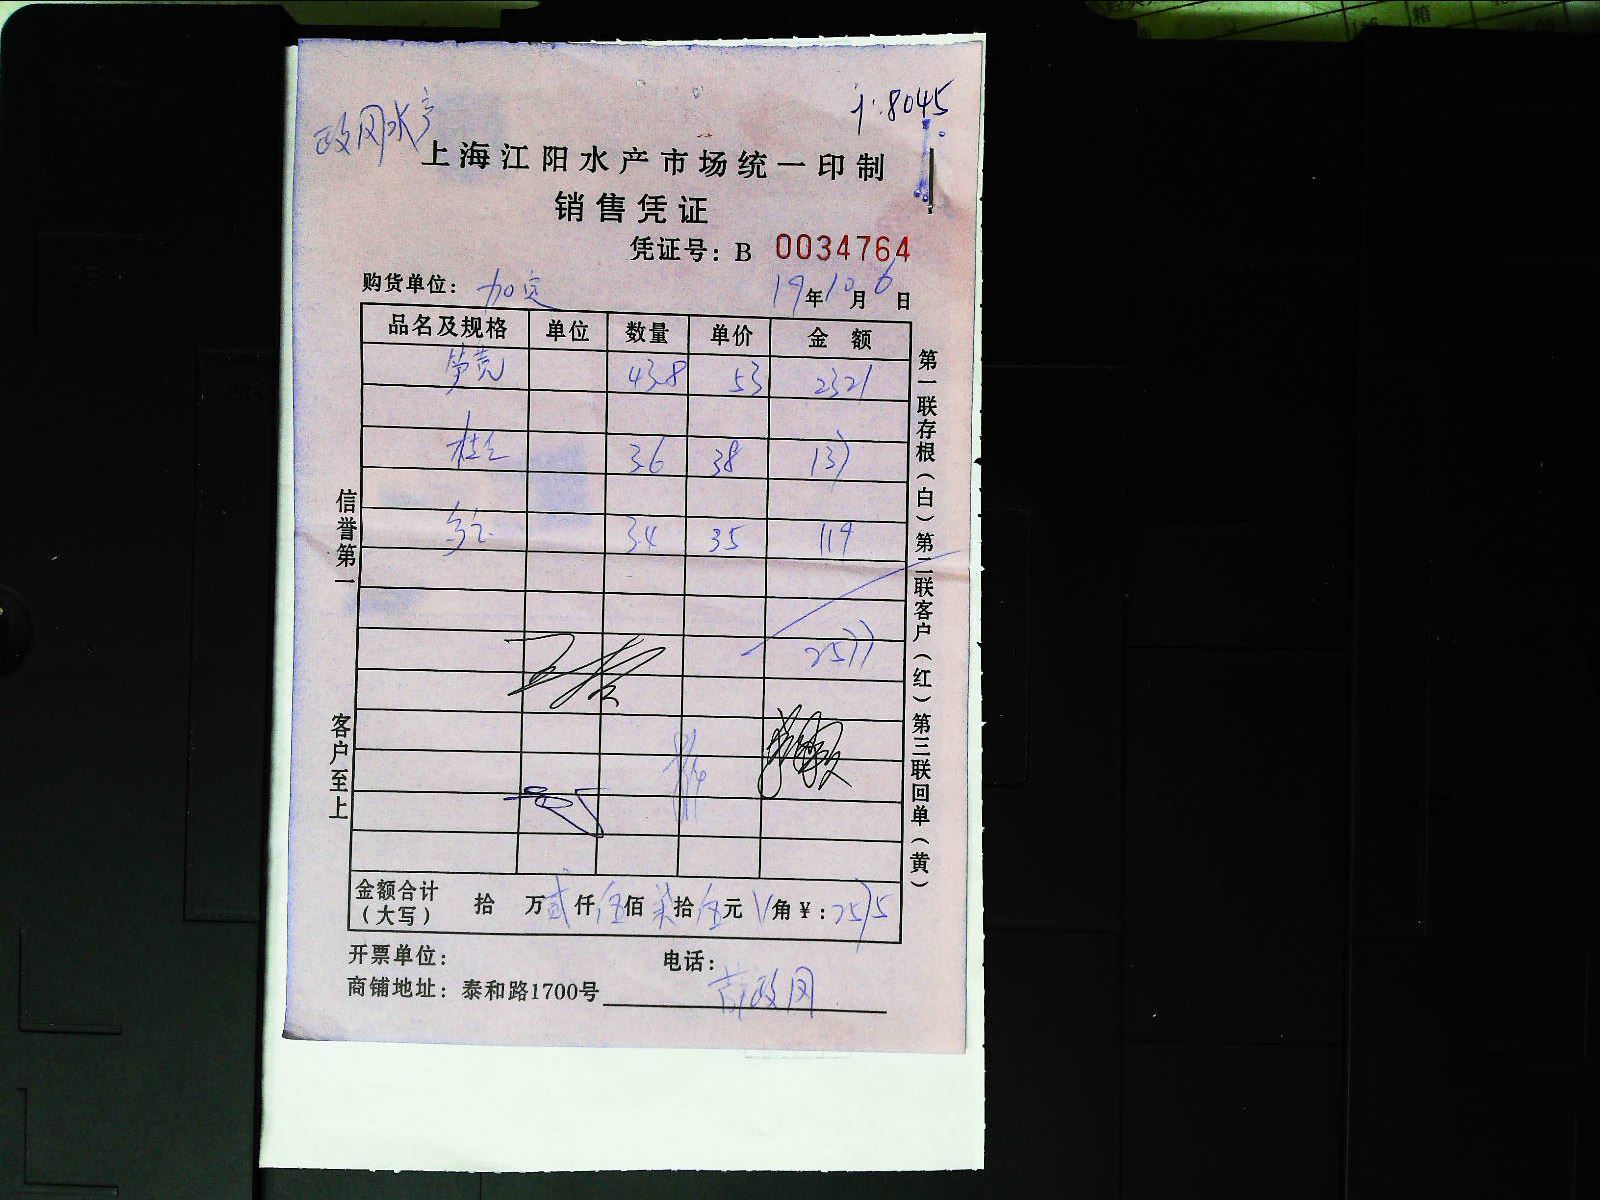 政风水产
上海江阳水产市场统一印制
销售凭证
凭证号：B 0034764
购货单位： 19年10月6日
品名及规格 单位 数量 单价 金额
43.8 53 2321
3.6 38 137
3.4 35 119
2577
金额合计（大写） 拾 万贰仟伍佰柒拾伍元 角￥：2575
开票单位： 电话：
商铺地址：泰和路1700号
信誉第一
客户至上
第一联存根（白）第二联客户（红）第三联回单（黄）